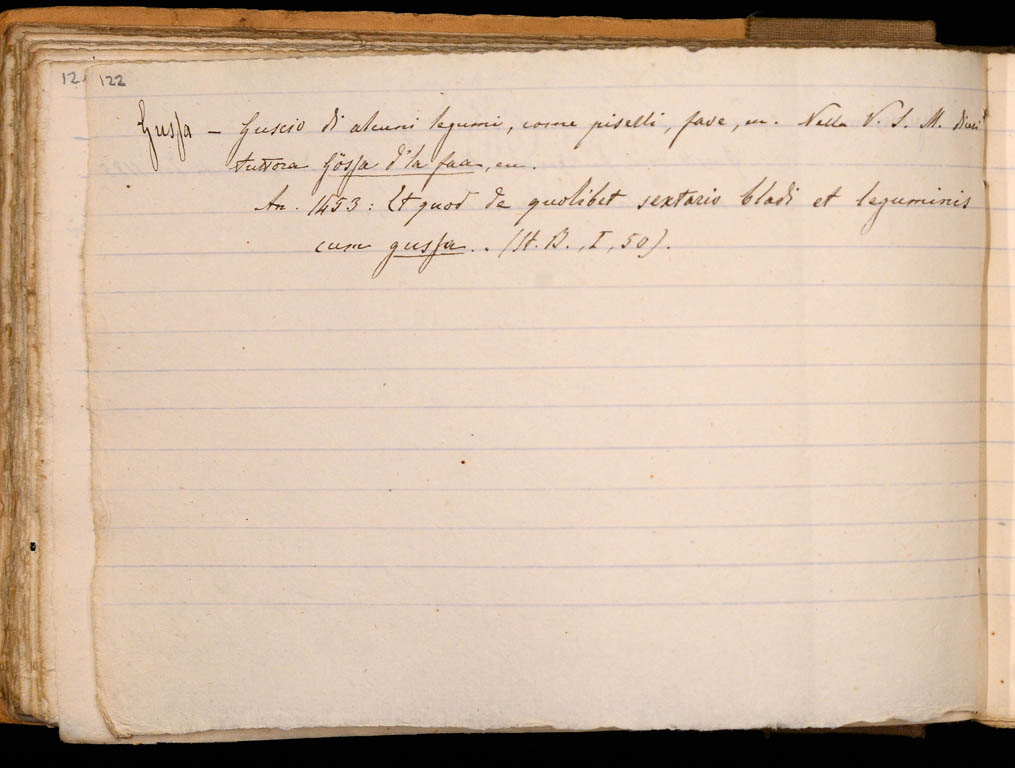 12 122
Gussa – Guscio di alcuni legumi, come piselli, fave, ecc. Nella V. S. M. dicesi
tuttora gössa d'la faa, ecc.
An. 1453: Et quod de quolibet sextario bladi et leguminis
cum gussa.. (St. B., I, 50).